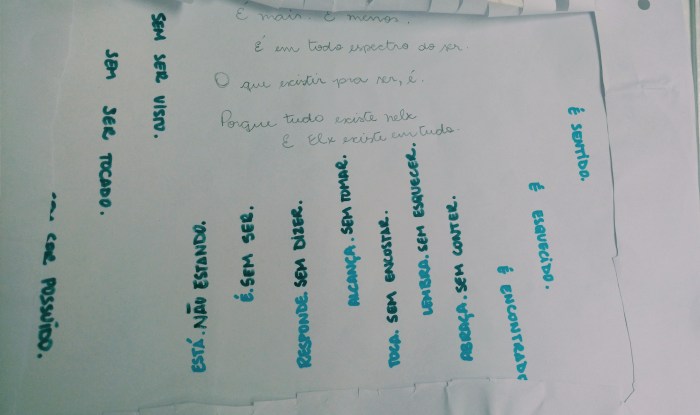 É mais. E menos.
É em todo espectro do ser.
O que existir pra ser, é.
Porque tudo existe nelx
E Elx existe em tudo.
ESTÁ. NÃO ESTANDO.
É. SEM SER.
RESPONDE. SEM DIZER.
ALCANÇA. SEM TOMAR.
TOCA. SEM ENCOSTAR.
LEMBRA. SEM ESQUECER.
ABRAÇA. SEM CONTER.
É SENTIDO.
É ESQUECIDO.
É ENCONTRADO
SEM SER VISTO.
SEM SER TOCADO.
SER POSSUÍDO.